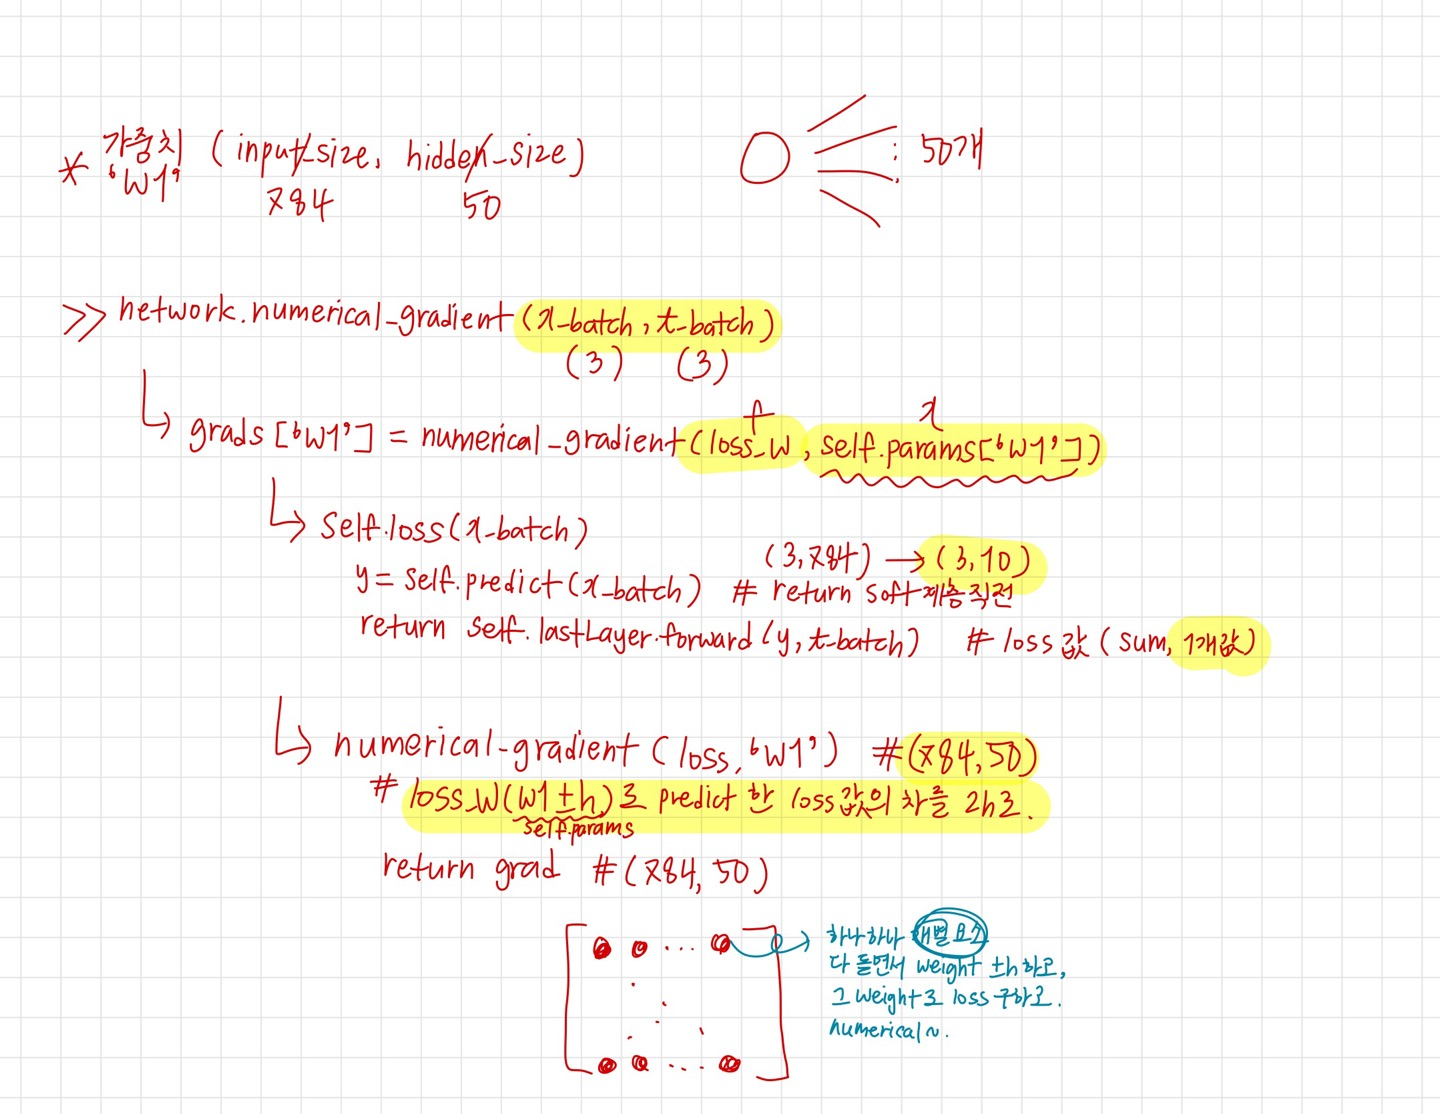 * 가중치 (input_size, hidden_size)
'W1' 784 50
50개
>> network.numerical_gradient(x_batch, t_batch)
(3) (3)
f x
grads['W1'] = numerical_gradient(loss_W, self.params['W1'])
self.loss(x_batch)
(3, 784) → (3, 10)
y = self.predict(x_batch) # return soft계층직전
return self.lastLayer.forward(y, t_batch) # loss값 (sum, 1개값)
numerical_gradient(loss, 'W1') #(784, 50)
# loss_W(W1±h)로 predict 한 loss값의 차를 2h로.
self.params
return grad #(784, 50)
하나하나 개별요소
다 돌면서 weight ±h하고,
그 weight로 loss 구하고.
numerical~.